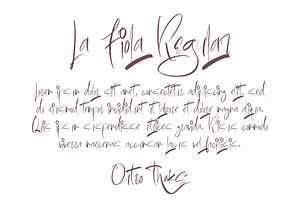 La Fiola Regular
Lorem ipsum dolor sit amet, consectetur adipiscing elit, sed
do eiusmod tempor incididunt ut labore et dolore magna aliqua.
Quis ipsum suspendisse ultrices gravida. Risus commodo
viverra maecenas accumsan lacus vel facilisis.